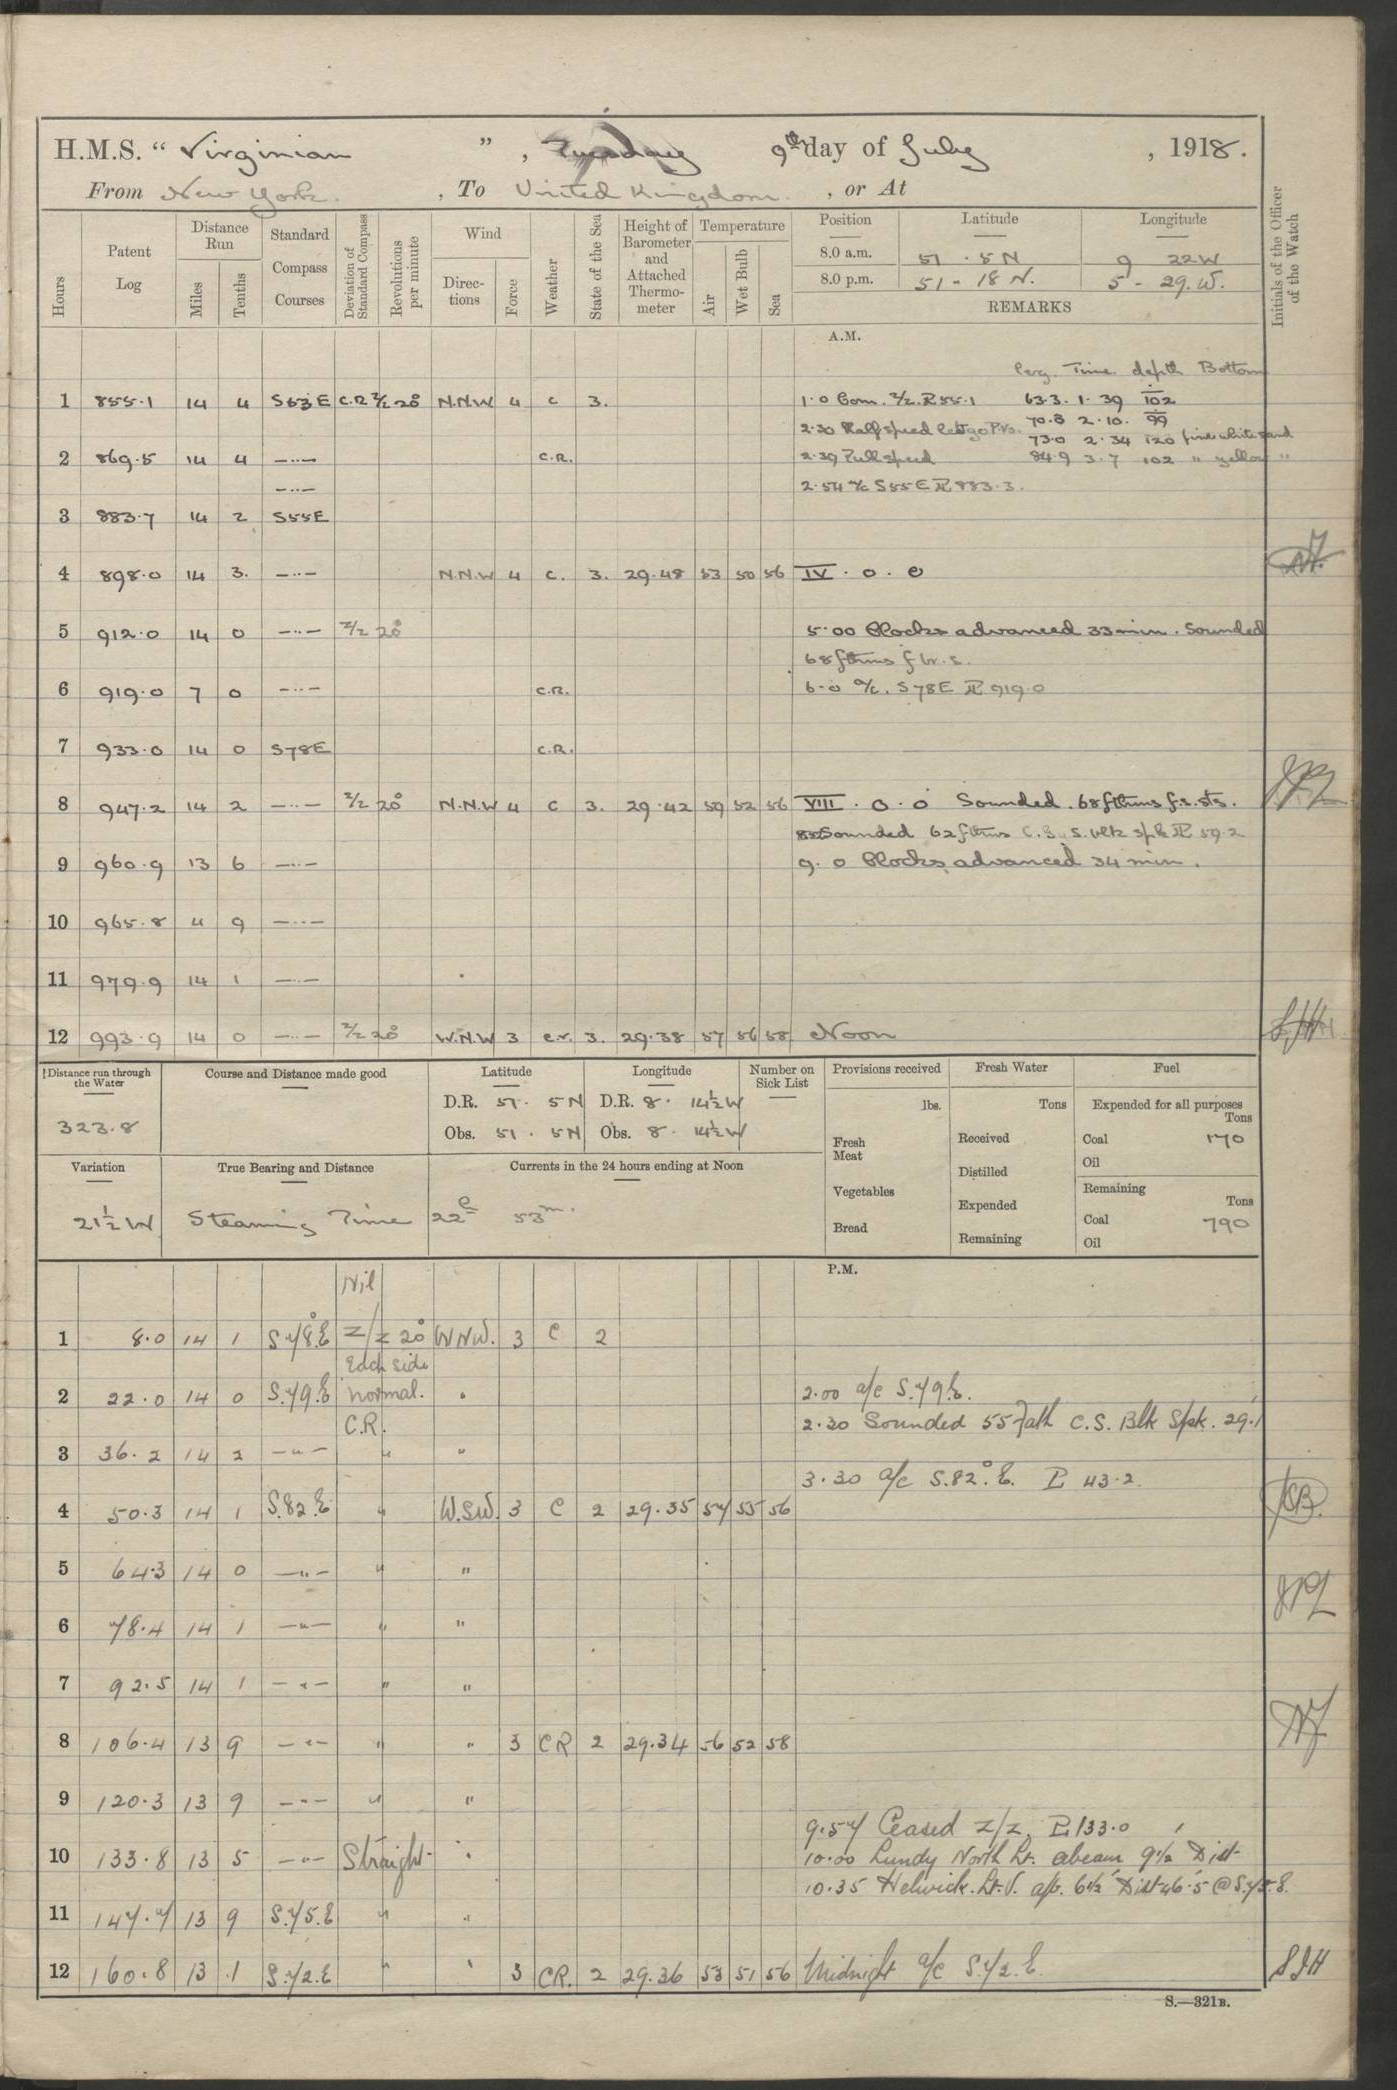 H.M.S. " Virginian " , Tuesday 9th day of July , 1918.
From New York. , To United Kingdom. , or At
Hours Patent Log Distance Run Miles Tenths Standard Compass Courses Deviation of Standard Compass Revolutions per minute Wind Directions Force Weather State of the Sea Height of Barometer and Attached Thermometer Temperature Air Wet Bulb Sea Position Latitude Longitude Initials of the Officer of the Watch
8.0 a.m. 51 . 5 N 9 22 W
8.0 p.m. 51 - 18 N. 5 - 29. W.
REMARKS
A.M.
Time depth Bottom
1 855.1 14 4 S63E C.R Z/Z 20° N.N.W 4 c 3. 1.0 Com. Z/Z. PL 55.1 63.3. 1. 39 102
70.8 2.10. 99
2.30 Half speed let go P.Vs. 73.0 2.34 120 fine white sand
2 869.5 14 4 —..— C.R. 2.39 Full speed 84.9 3.7 102 " yellow "
—..— 2.54 a/c S55E PL 883.3.
3 883.7 14 2 S55E
4 898.0 14 3. —..— N.N.W 4 c. 3. 29.48 53 50 56 IV . 0 . 0
5 912.0 14 0 —..— Z/Z 20° 5.00 Clocks advanced 33 min. Sounded
68 fthms f br. s.
6 919.0 7 0 —..— C.R. 6.0 a/c. S78E PL 919.0
7 933.0 14 0 S78E C.R.
8 947.2 14 2 —..— Z/Z 20° N.N.W 4 c 3. 29.42 59 52 56 VIII . 0 . 0 Sounded. 68 fthms f.s. sts.
Sounded 62 fthms C.S. S. blk spk PL 59.2
9 960.9 13 6 —..— 9.0 Clocks advanced 34 min.
10 965.8 4 9 —..—
11 979.9 14 1 —..—
12 993.9 14 0 —..— Z/Z 20° W.N.W 3 c.r. 3. 29.38 57 56 58 Noon
Distance run through the Water Course and Distance made good Latitude Longitude Number on Sick List Provisions received Fresh Water Fuel
323.8 D.R. 51. 5N D.R. 8. 14½W lbs. Tons Expended for all purposes Tons
Obs. 51. 5N Obs. 8. 14½W Fresh Meat Received Coal 170
Variation True Bearing and Distance Currents in the 24 hours ending at Noon Distilled Oil
Vegetables Expended Remaining Tons
21½W Steaming Time 22h 53m. Bread Remaining Coal 790
Oil
P.M.
Nil
1 8.0 14 1 S.78°.E Z/Z 20° WNW. 3 C 2
Each side
2 22.0 14 0 S.79.E normal. " 2.00 a/c S.79.E.
C.R. 2.30 Sounded 55 Fath C.S. Blk Spk. 29.1
3 36.2 14 2 —"— " "
3.30 a/c S.82°.E. PL 43.2.
4 50.3 14 1 S.82.E " W.SW. 3 C 2 29.35 57 55 56
5 64.3 14 0 —"— " "
6 78.4 14 1 —"— " "
7 92.5 14 1 —"— " "
8 106.4 13 9 —"— " " 3 CR 2 29.34 56 52 58
9 120.3 13 9 —"— " "
9.57 Ceased Z/Z. PL 133.0
10 133.8 13 5 —"— Straight " 10.00 Lundy North Lt. abeam 9½' Dist
10.35 Helwick. Lt. V. 6½' Dist 46.5 @ S.75.E.
11 147.7 13 9 S.75.E " "
12 160.8 13 .1 S.72.E " " 3 CR. 2 29.36 53 51 56 Midnight a/c S.72.E. SJH
S.—321B.